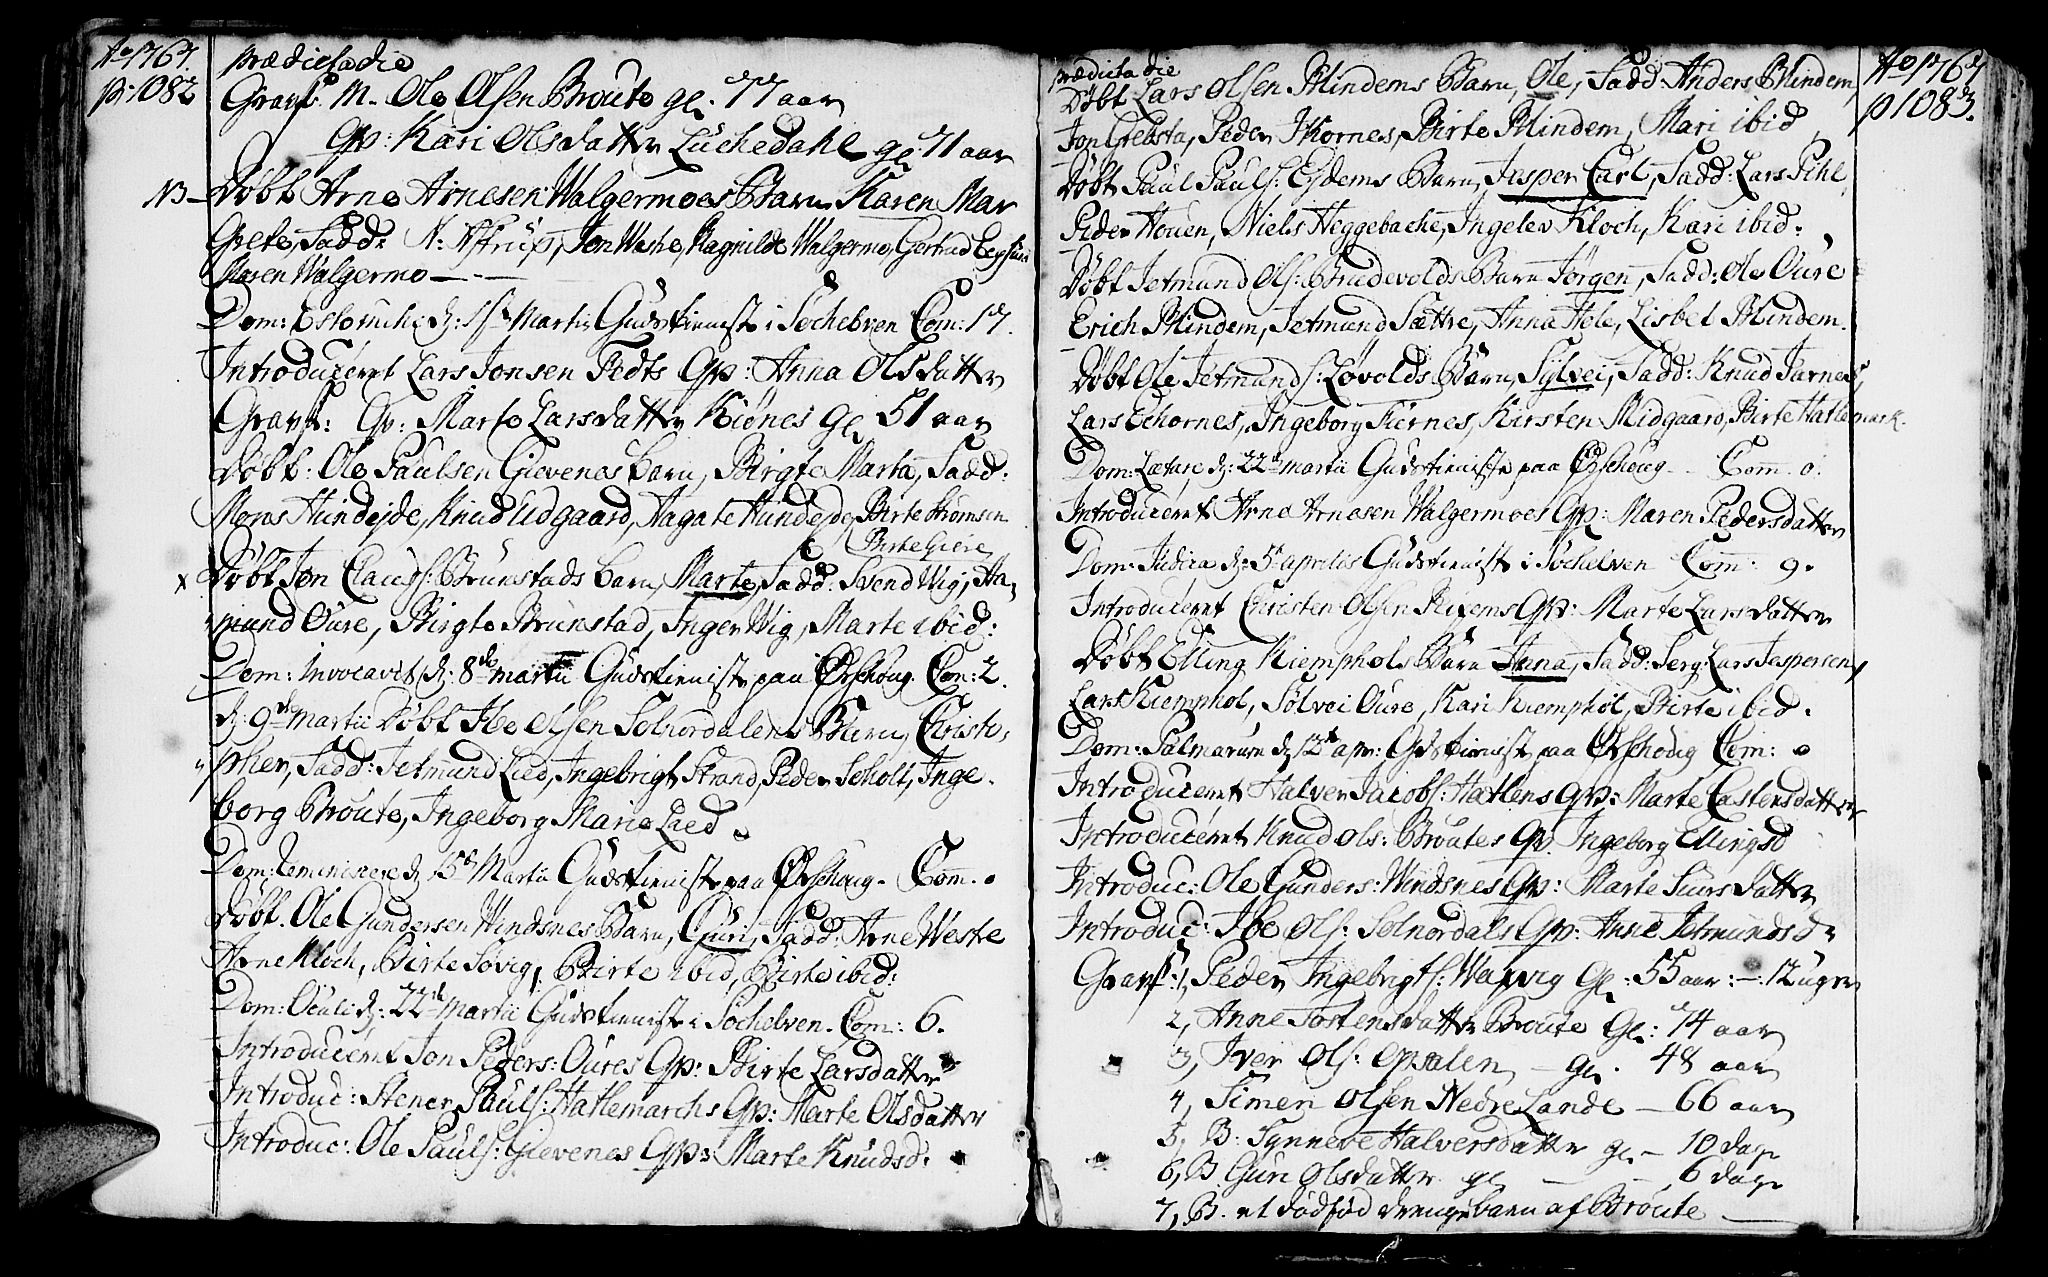 Ao 1767.
p. 1082
prædicto die
Gravf. M. Ole Olsen Broute gl. 77 aar
Qv: Kari Olsdatter Luchedahl gl. 71 aar
NB Døbt Arne Arnesen Walgermoes Barn Karen Mar
grete, Fadd: N. Astrup, Jon Weshe, Ragnilde Walgermo, Gertrud
Maren Walgermo
Dom: Estomihi d: 1ste Martii Gudstienist i Søchelven Com: 17.
Introduceret Lars Jonsen Fedts Qv: Anna Olsdatter
Gravf: Qv: Marte Larsdatter Kiønes gl 51 aar
Døbt: Ole Paulsen Gievenes barn, Birgte Marta, Fadd:
Mons Hundejde, Knud Udgaard, Aagate Hundejde, Birte Strømsen
Birte Giere
x Døbt Jon Clausf: Brunstads barn, Marte, Fadd: Svend Wig, Aa-
mund Oure, Birgte Brunstad, Inger Wig, Marte ibid:
Dom: Invocavit d: 8de martii Gudstienist paa Ørschoug Com: 2.
d: 9de martii Døbt Ibe Olsen Solnordalens Barn, Christo-
pher, Fadd: Jetmund Lied, Ingebrigt Strand, Peder Scholt, Inge-
borg Broute, Ingeborg Marie Lied
Dom: Reminiscere d 15de Martii Gudstienist paa Ørschoug. Com. 0
Døbt. Ole Gundersen Windsnes Barn, Guri, Fadd: Arne Weste
Arne Kloch, Birte Søvig, Birte ibid, Birte ibid:
Dom: Oculi d: 22de martii Gudstienist i Søchelven. Com: 6.
Introduceret Jon Peders: Oures Qv: Birte Larsdatter
Introduc: Stener Paulf: Hatlemarchs Qv: Marte Olsdatter
Introduc: Ole Paulf: Gievenes Qv: Marte Knudsd:
Ao 1767
p 1083.
prædicto die
Døbt Lars Olsen Blindems Barn, Ole, Fadd: Anders Blindem,
Jon Grebsta, Peder Ikornes, Birte Blindem, Mari ibid
Døbt Paul Paulf: Esdems Barn, Jasper Carl, Fadd: Lars Pihl,
Peder Houen, Niels Heggebache, Ingelev Kloch, Kari ibid.
Døbt Jetmund Olf: Brudevolds Barn Jørgen, Fadd: Ole Oure
Erich Blindem, Jetmund Sættre, Anna Hele, Lisbet Blindem.
Døbt Ole Jetmundf: Løvolds Barn, Sylvei, Fadd: Knud Jarnes,
Lars Echornes, Ingeborg Kiernes, Kirsten Midgaard, Birte Hatlemark.
Dom: Lætare d: 22de martii Gudstienist paa Ørschoug Com. 0.
Introduceret Arne Arnesen Walgermoes Qv: Maren Pedersdatter
Dom: Judica d: 5te aprilis Gudstienist i Søchelven Com: 9.
Introduceret Christen Olsen Rixems Qv: Marte Larsdatter
Døbt Elling Kiemphols Barn Anna, Fadd: Serg: Lars Jespersen,
Lars Kiemphol, Sølvei Oure, Kari Kiemphol, Birte ibid.
Dom: Palmarum d 12te apr: Gudstienist paa Ørschoug Com: 0
Introduceret Halver Jacobf: Hatlens Qv: Marte Castensdatter
Introduceret Knud Ols: Broutes Qv. Ingeborg Ellingsd
Introduc: Ole Gunders: Windsnes Qv: Marte Siursdatter
Introduc: Ibe Olf: Solnordals Qv: Anne Jetmundsd:
Gravf: 1, Peder Ingebrigtf: Wasvig Gl: 55 aar: 12 uger
2, Anne Tostensdatter Broute Gl: 74 aar
3, Iver Olf: Opsalen gl. 48 aar
4, Simen Olsen Nedre Lande 66 aar
5, B: Synneve Halversdatter gl 10 dage
6, B Guri Olsdatter gl 6 dage
7, B. et dødfød drengebarn af Broute